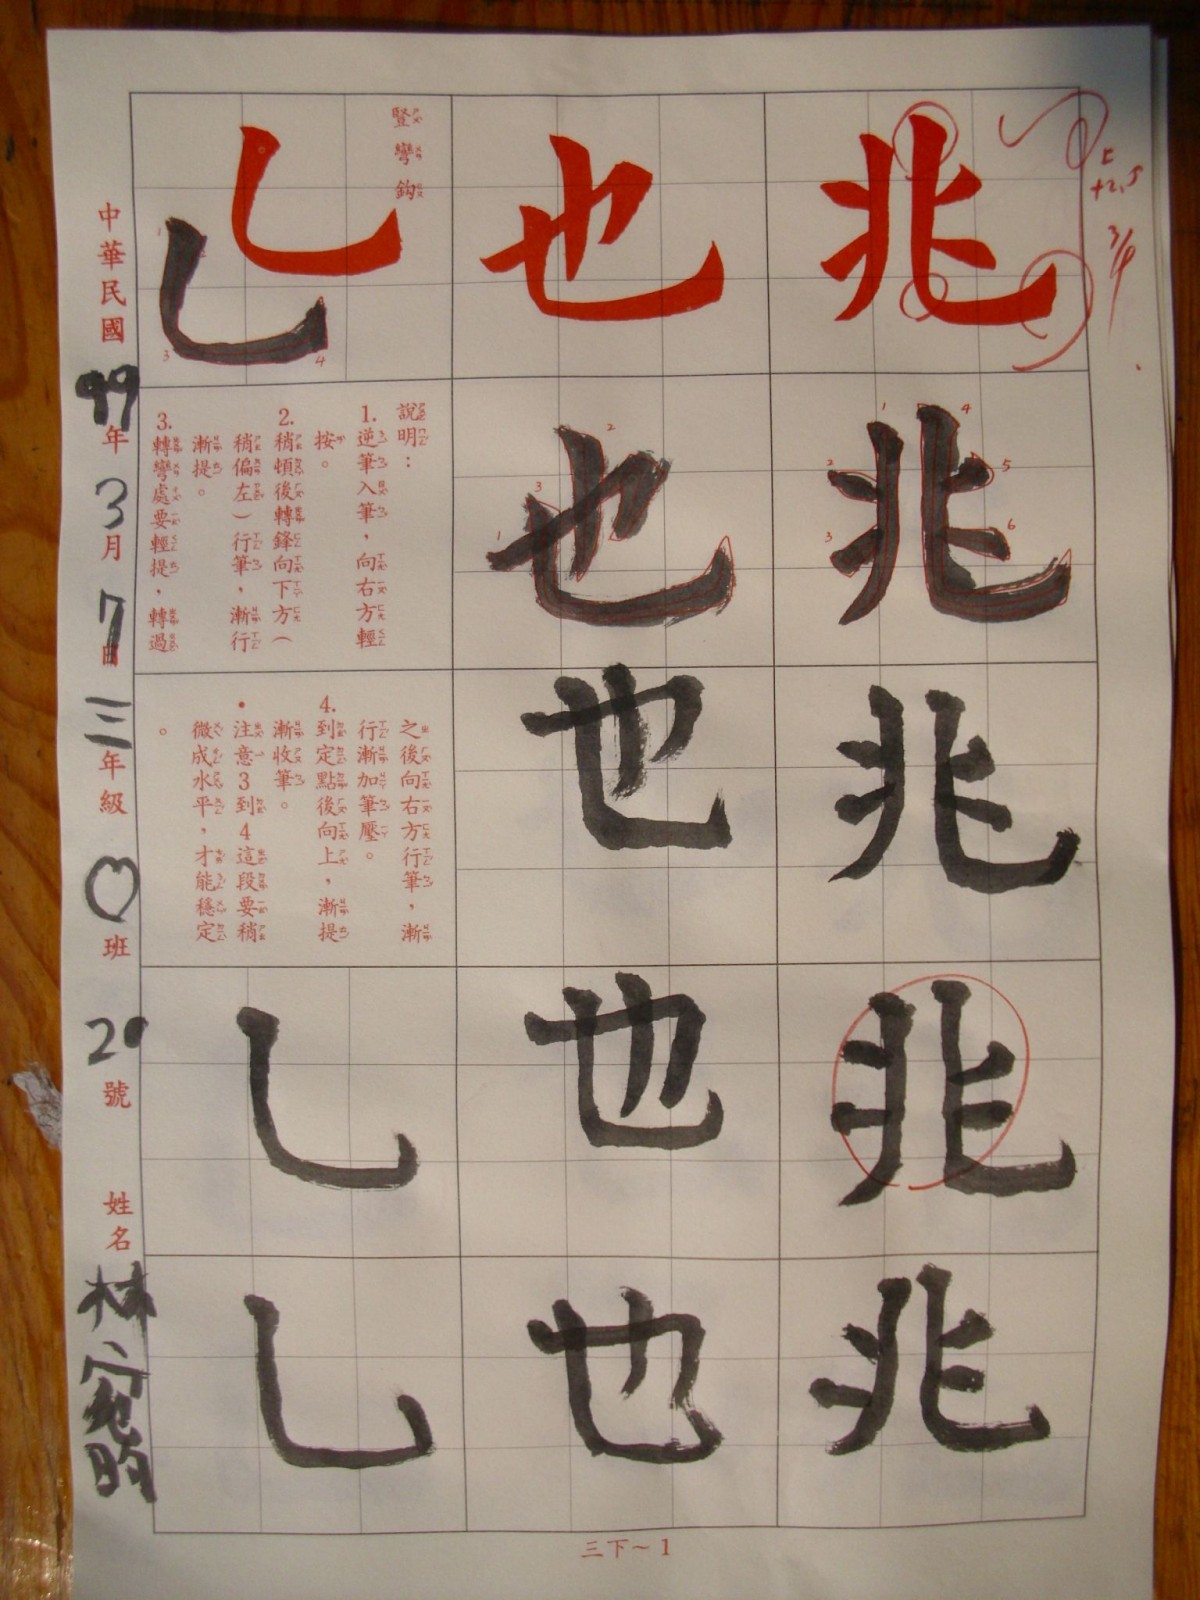 兆
兆
兆
兆
兆
也
也
也
也
也
豎彎鈎
說明：
1. 逆筆入筆，向右方輕
按。
2. 稍頓後轉鋒向下方（
稍偏左）行筆，漸行
漸提。
3. 轉彎處要輕提，轉過
之後向右方行筆，漸
行漸加筆壓。
4. 到定點後向上，漸提
漸收筆。
• 注意3到4這段要稍
微成水平，才能穩定
。
中華民國99年3月7日三年級班20號 姓名林宛
三下～1